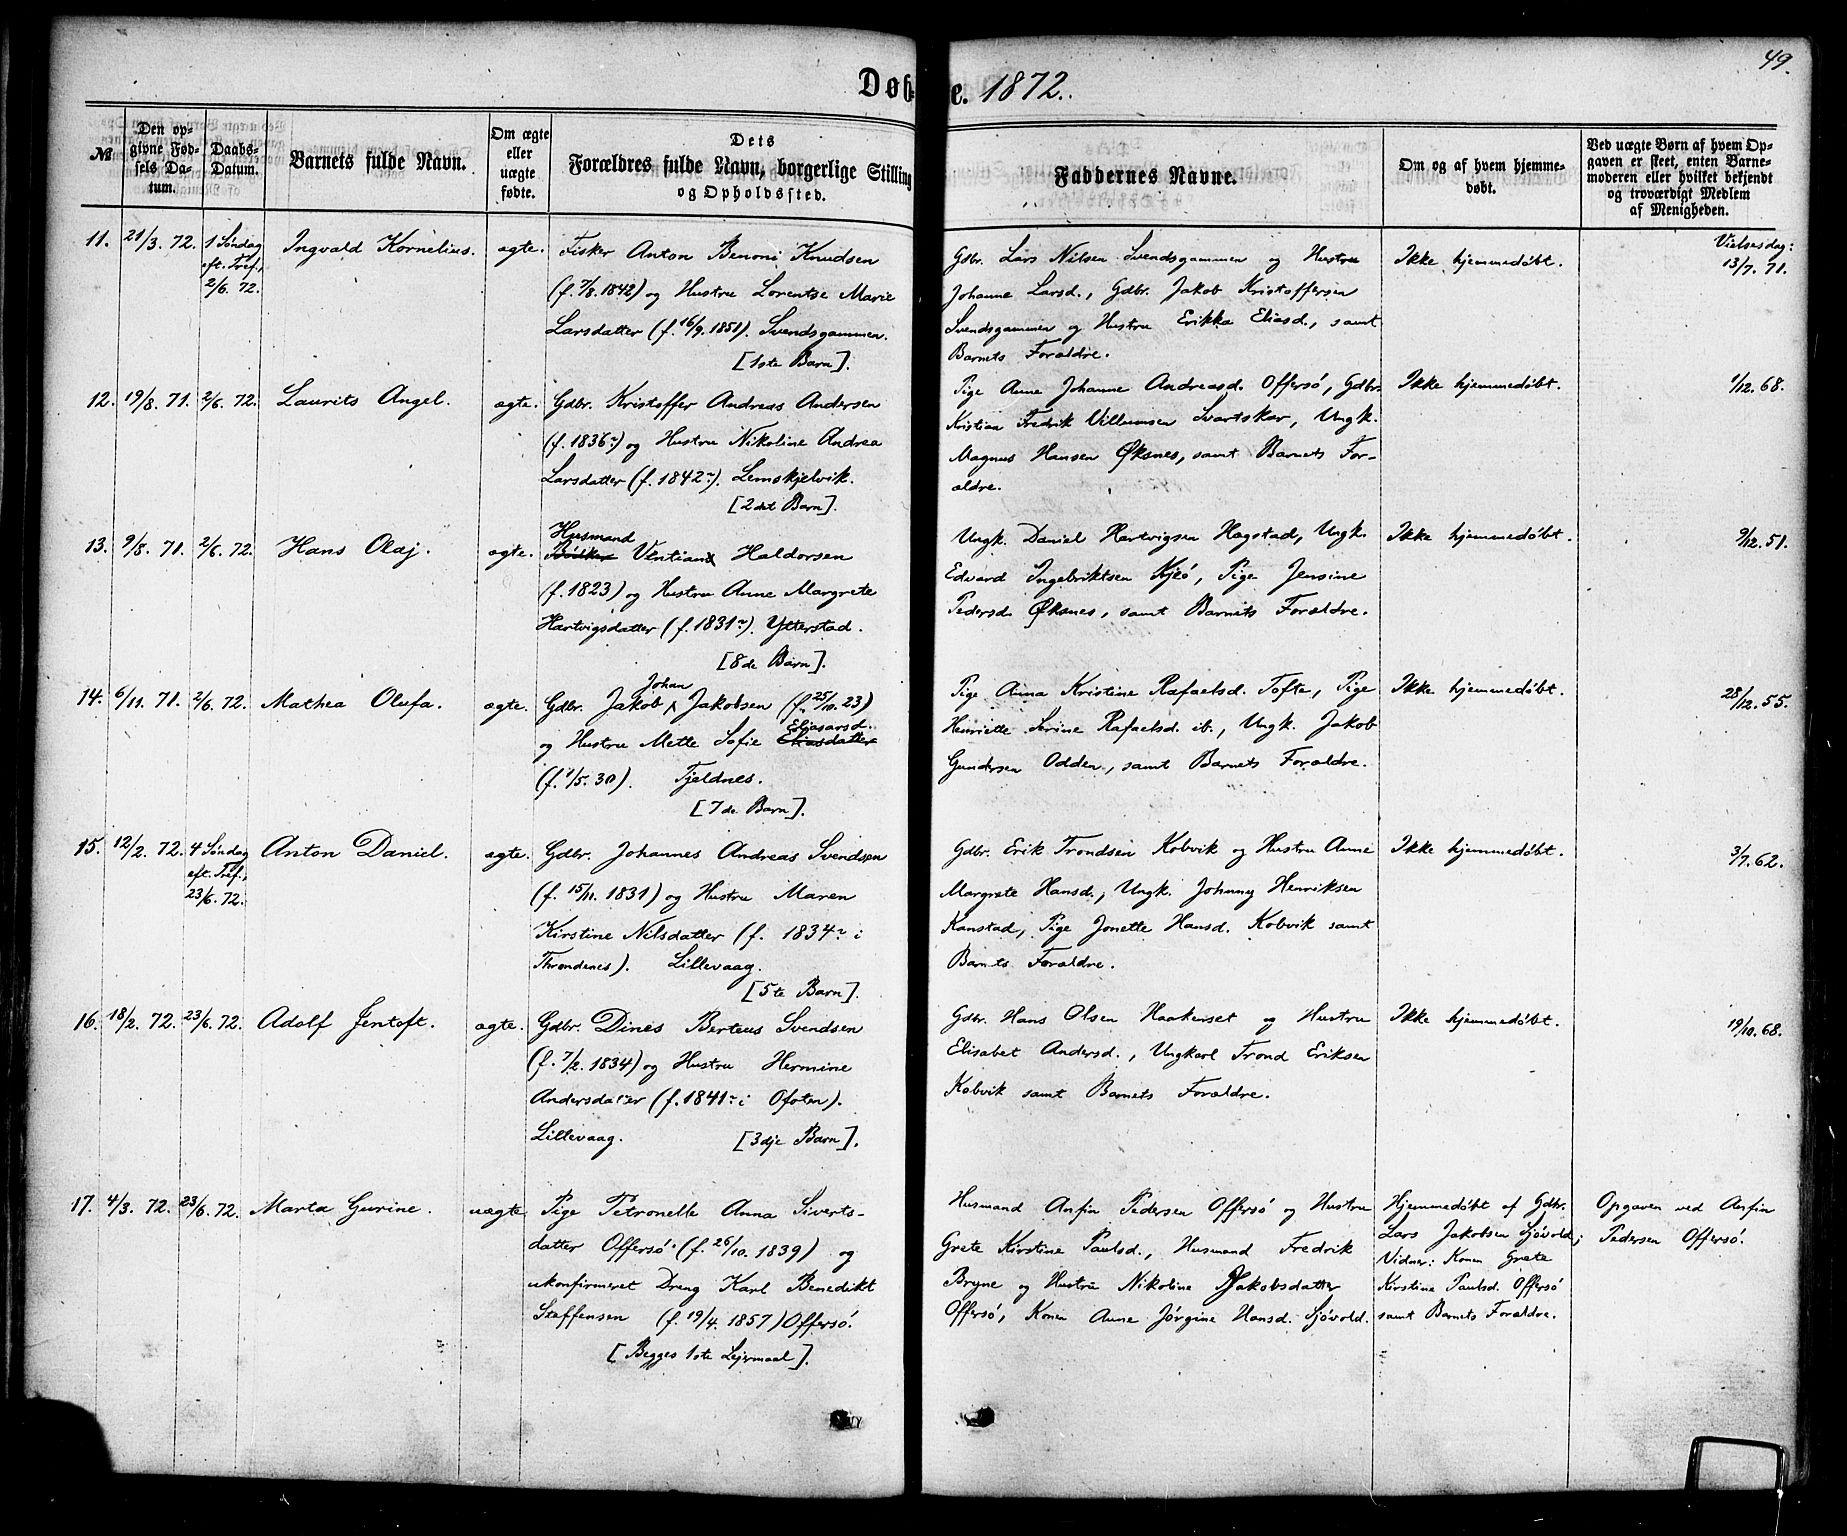 49.
Døbte. 1872.
№
Den op-
givne Fød-
sels Da-
tum.
Daabs-
Datum.
Barnets fulde Navn.
Om ægte
eller
uægte
fødte.
Dets
Forældres fulde Navn, borgerlige Stilling
og Opholdssted.
Faddernes Navne.
Om og af hvem hjemme-
døbt.
Ved uægte Børn af hvem Op-
gaven er skeet, enten Barne-
moderen eller hvilket bekjendt
og troværdigt Medlem
af Menigheden.
11. 21/3. 72. 1 Søndag
eft. Tref.,
2/6. 72.
Ingvald Kornelius. ægte.
Fisker Anton Benoni Knudsen
(f. 7/8. 1842) og Hustru Lorentse Marie
Larsdatter (f. 16/9. 1851). Svendsgammen.
[1ste Barn].
Gdbr. Lars Nilsen Svendsgammen og Hustru
Johanne Larsd., Gdbr. Jakob Kristoffersen
Svendsgammen og Hustru Erikka Eliasd., samt
Barnets Forældre.
Ikke hjemmedøbt.
Vielsesdag:
13/7. 71.
12. 19/8. 71. 2/6. 72. Laurits Angel. ægte.
Gdbr. Kristoffer Andreas Andersen
(f. 1836) og Hustru Nikoline Andrea
Larsdatter (f. 1842). Lemskjelvik.
[2det Barn].
Pige Anne Johanne Andreasd. Offersø, Gdbr.
Kristian Fredrik Villumsen Svartskar, Ungk.
Magnus Hansen Øksnes, samt Barnets For-
ældre.
Ikke hjemmedøbt.
1/12. 68.
13. 9/8. 71. 2/6. 72. Hans Olaj. ægte.
Husmand
Bødker Ventian Haldorsen
(f. 1823) og Hustru Anne Margrete
Hartvigsdatter (f. 1831). Ytterstad.
[8de Barn].
Ungk. Daniel Hartvigsen Hegstad, Ungk.
Edvard Ingebriktsen Kjeö, Pige Jensine
Pedersd. Øksnes, samt Barnets Forældre.
Ikke hjemmedøbt.
9/12. 51.
14. 6/11. 71. 2/6. 72. Mathea Olufa. ægte.
Johan
Gdbr. Jakob Jakobsen (f. 25/10. 23)
Eliasarsd.
og Hustru Mette Sofie Eliasdatter
(f. 1/5. 30). Fjeldnes.
[7de Barn].
Pige Anna Kristine Rafaelsd. Tofte, Pige
Henriette Serine Rafaelsd. ib., Ungk. Jakob
Gundersen Odden, samt Barnets Forældre.
Ikke hjemmedøbt.
28/12. 55.
15. 12/2. 72. 4 Søndag
eft. Tref.,
23/6. 72.
Anton Daniel. ægte.
Gdbr. Johannes Andreas Svendsen
(f. 15/11. 1831) og Hustru Maren
Kirstine Nilsdatter (f. 1834 i
Throndenes). Lillevaag.
[5te Barn].
Gdbr. Erik Trondsen Kobvik og Hustru Anne
Margrete Hansd., Ungk. Johnny Henriksen
Kanstad, Pige Jonette Hansd. Kobvik samt
Barnets Forældre.
Ikke hjemmedøbt.
3/7. 62.
16. 18/2. 72. 23/6. 72. Adolf Jentoft. ægte.
Gdbr. Dines Berteus Svendsen
(f. 7/2. 1834) og Hustru Hermine
Andersdatter (f. 1841 i Ofoten).
Lillevaag. [3dje Barn].
Gdbr. Hans Olsen Haakenset og Hustru
Elisabet Andersd., Ungkarl Trond Eriksen
Kobvik samt Barnets Forældre.
Ikke hjemmedøbt.
19/10. 68.
17. 4/3. 72. 23/6. 72. Marta Gurine. uægte
Pige Petronelle Anna Siverts-
datter Offersø (f. 26/10. 1839) og
ukonfirmeret Dreng Karl Benedikt
Staffensen (f. 19/4. 1857) Offersø.
[Begges 1ste Lejermaal].
Husmand Anfin Pedersen Offersø og Hustru
Grete Kirstine Paulsd., Husmand Fredrik
Bryne og Hustru Nikoline Jakobsdatter
Offersø, Konen Anne Jørgine Hansd. Sjøvold.
Hjemmedøbt af Gdbr.
Lars Jakobsen Sjøvold;
Vidner: Konen Grete
Kirstine Paulsd. Offersø
samt Barnets Forældre.
Opgaven ved Anfin
Pedersen Offersø.